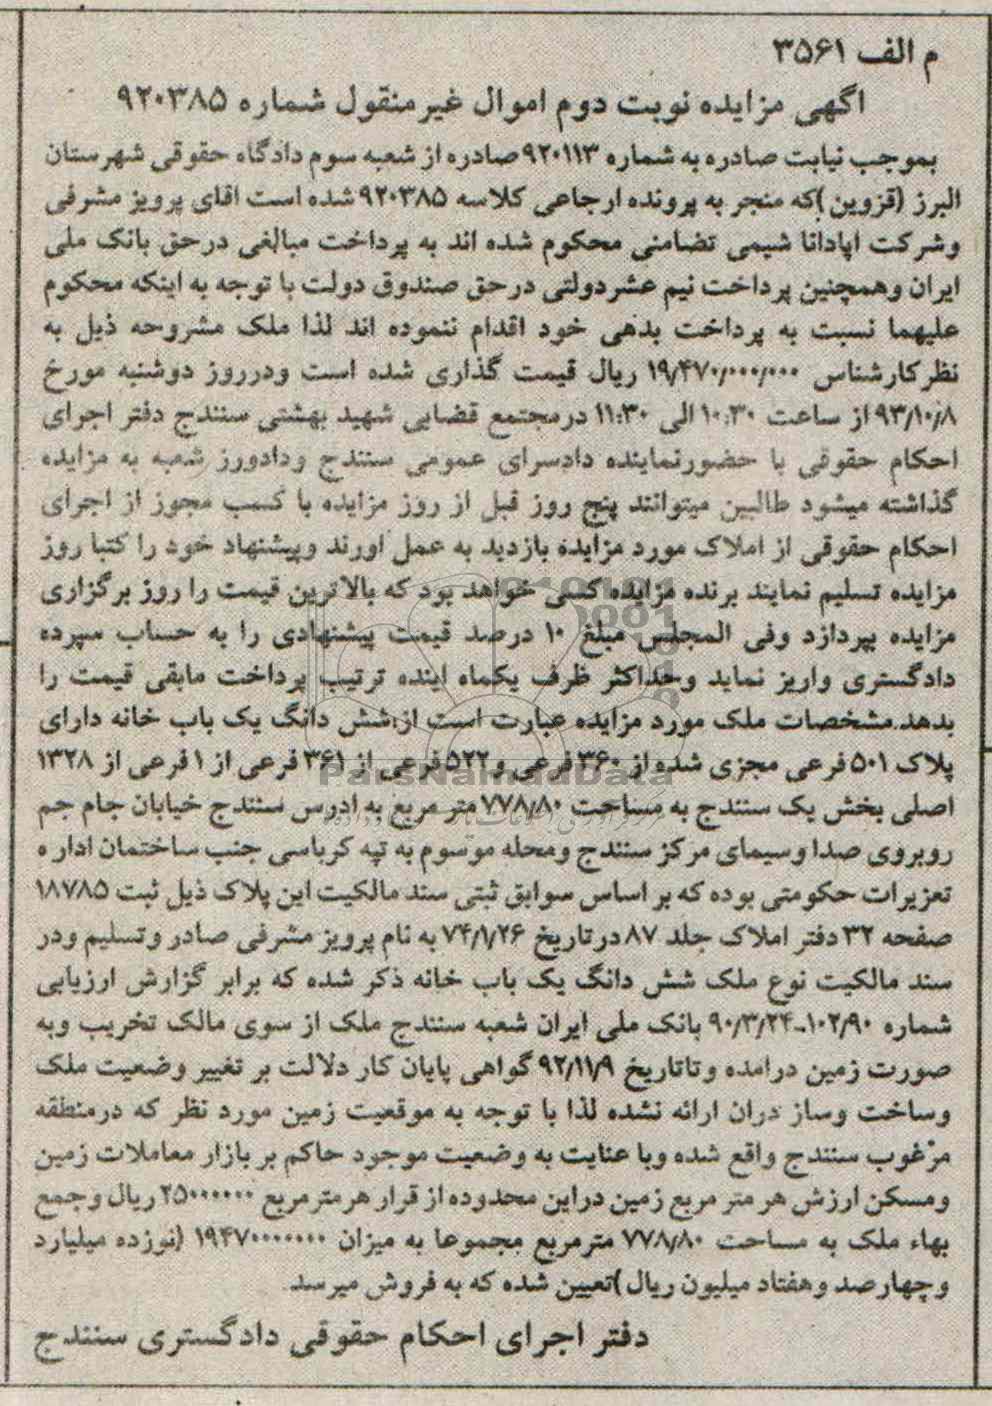 م الف ۳۵۶۱
آگهی مزایده نوبت دوم اموال غیرمنقول شماره ۹۲۰۳۸۵
بموجب نیابت صادره به شماره ۹۲۰۱۱۳ صادره از شعبه سوم دادگاه حقوقی شهرستان
البرز (قزوین )که منجر به پرونده ارجاعی کلاسه ۹۲۰۳۸۵ شده است اقای پرویز مشرفی
وشرکت اپادانا شیمی تضامنی محکوم شده اند به پرداخت مبالغی درحق بانک ملی
ایران وهمچنین پرداخت نیم عشردولتی درحق صندوق دولت با توجه به اینکه محکوم
علیهما نسبت به پرداخت بدهی خود اقدام ننموده اند لذا ملک مشروحه ذیل به
نظرکارشناس ۱۹/۴۷۰/۰۰۰/۰۰۰ ریال قیمت گذاری شده است ودرروز دوشنبه مورخ
۹۳/۱۰/۸ از ساعت ۱۰:۳۰ الی ۱۱:۳۰ درمجتمع قضایی شهید بهشتی سنندج دفتر اجرای
احکام حقوقی با حضورنماینده دادسرای عمومی سنندج ودادورز شعبه به مزایده
گذاشته میشود طالبین میتوانند پنج روز قبل از روز مزایده با کسب مجوز از اجرای
احکام حقوقی از املاک مورد مزایده بازدید به عمل اورند وپیشنهاد خود را کتبا روز
مزایده تسلیم نمایند برنده مزایده کسی خواهد بود که بالاترین قیمت را روز برگزاری
مزایده بپردازد وفی المجلس مبلغ ۱۰ درصد قیمت پیشنهادی را به حساب سپرده
دادگستری واریز نماید وحداکثر ظرف یکماه اینده ترتیب پرداخت مابقی قیمت را
بدهد.مشخصات ملک مورد مزایده عبارت است از:شش دانگ یک باب خانه دارای
پلاک ۵۰۱ فرعی مجزی شده از ۳۶۰ فرعی و ۵۲۲ فرعی از ۳۶۱ فرعی از ۱ فرعی از ۱۳۲۸
ParsNamadData
اصلی بخش یک سنندج به مساحت ۷۷۸/۸۰ متر مربع به ادرس سنندج خیابان جام جم
روبروی صدا وسیمای مرکز سنندج ومحله موسوم به تپه کرباسی جنب ساختمان اداره
تعزیرات حکومتی بوده که بر اساس سوابق ثبتی سند مالکیت این پلاک ذیل ثبت ۱۸۷۸۵
صفحه ۳۲ دفتر املاک جلد ۸۷ درتاریخ ۷۴/۱/۲۶ به نام پرویز مشرفی صادر وتسلیم ودر
سند مالکیت نوع ملک شش دانگ یک باب خانه ذکر شده که برابر گزارش ارزیابی
شماره ۱۰۲/۹۰-۹۰/۳/۲۴ بانک ملی ایران شعبه سنندج ملک از سوی مالک تخریب وبه
صورت زمین درامده وتاتاریخ ۹۲/۱۱/۹ گواهی پایان کار دلالت بر تغییر وضعیت ملک
وساخت وساز دران ارائه نشده لذا با توجه به موقعیت زمین مورد نظر که درمنطقه
مرغوب سنندج واقع شده وبا عنایت به وضعیت موجود حاکم بر بازار معاملات زمین
ومسکن ارزش هر متر مربع زمین دراین محدوده از قرار هرمترمربع ۲۵۰۰۰۰۰۰ ریال وجمع
بهاء ملک به مساحت ۷۷۸/۸۰ مترمربع مجموعا به میزان ۱۹۴۷۰۰۰۰۰۰۰ (نوزده میلیارد
وچهارصد وهفتاد میلیون ریال )تعیین شده که به فروش میرسد.
دفتر اجرای احکام حقوقی دادگستری سنندج